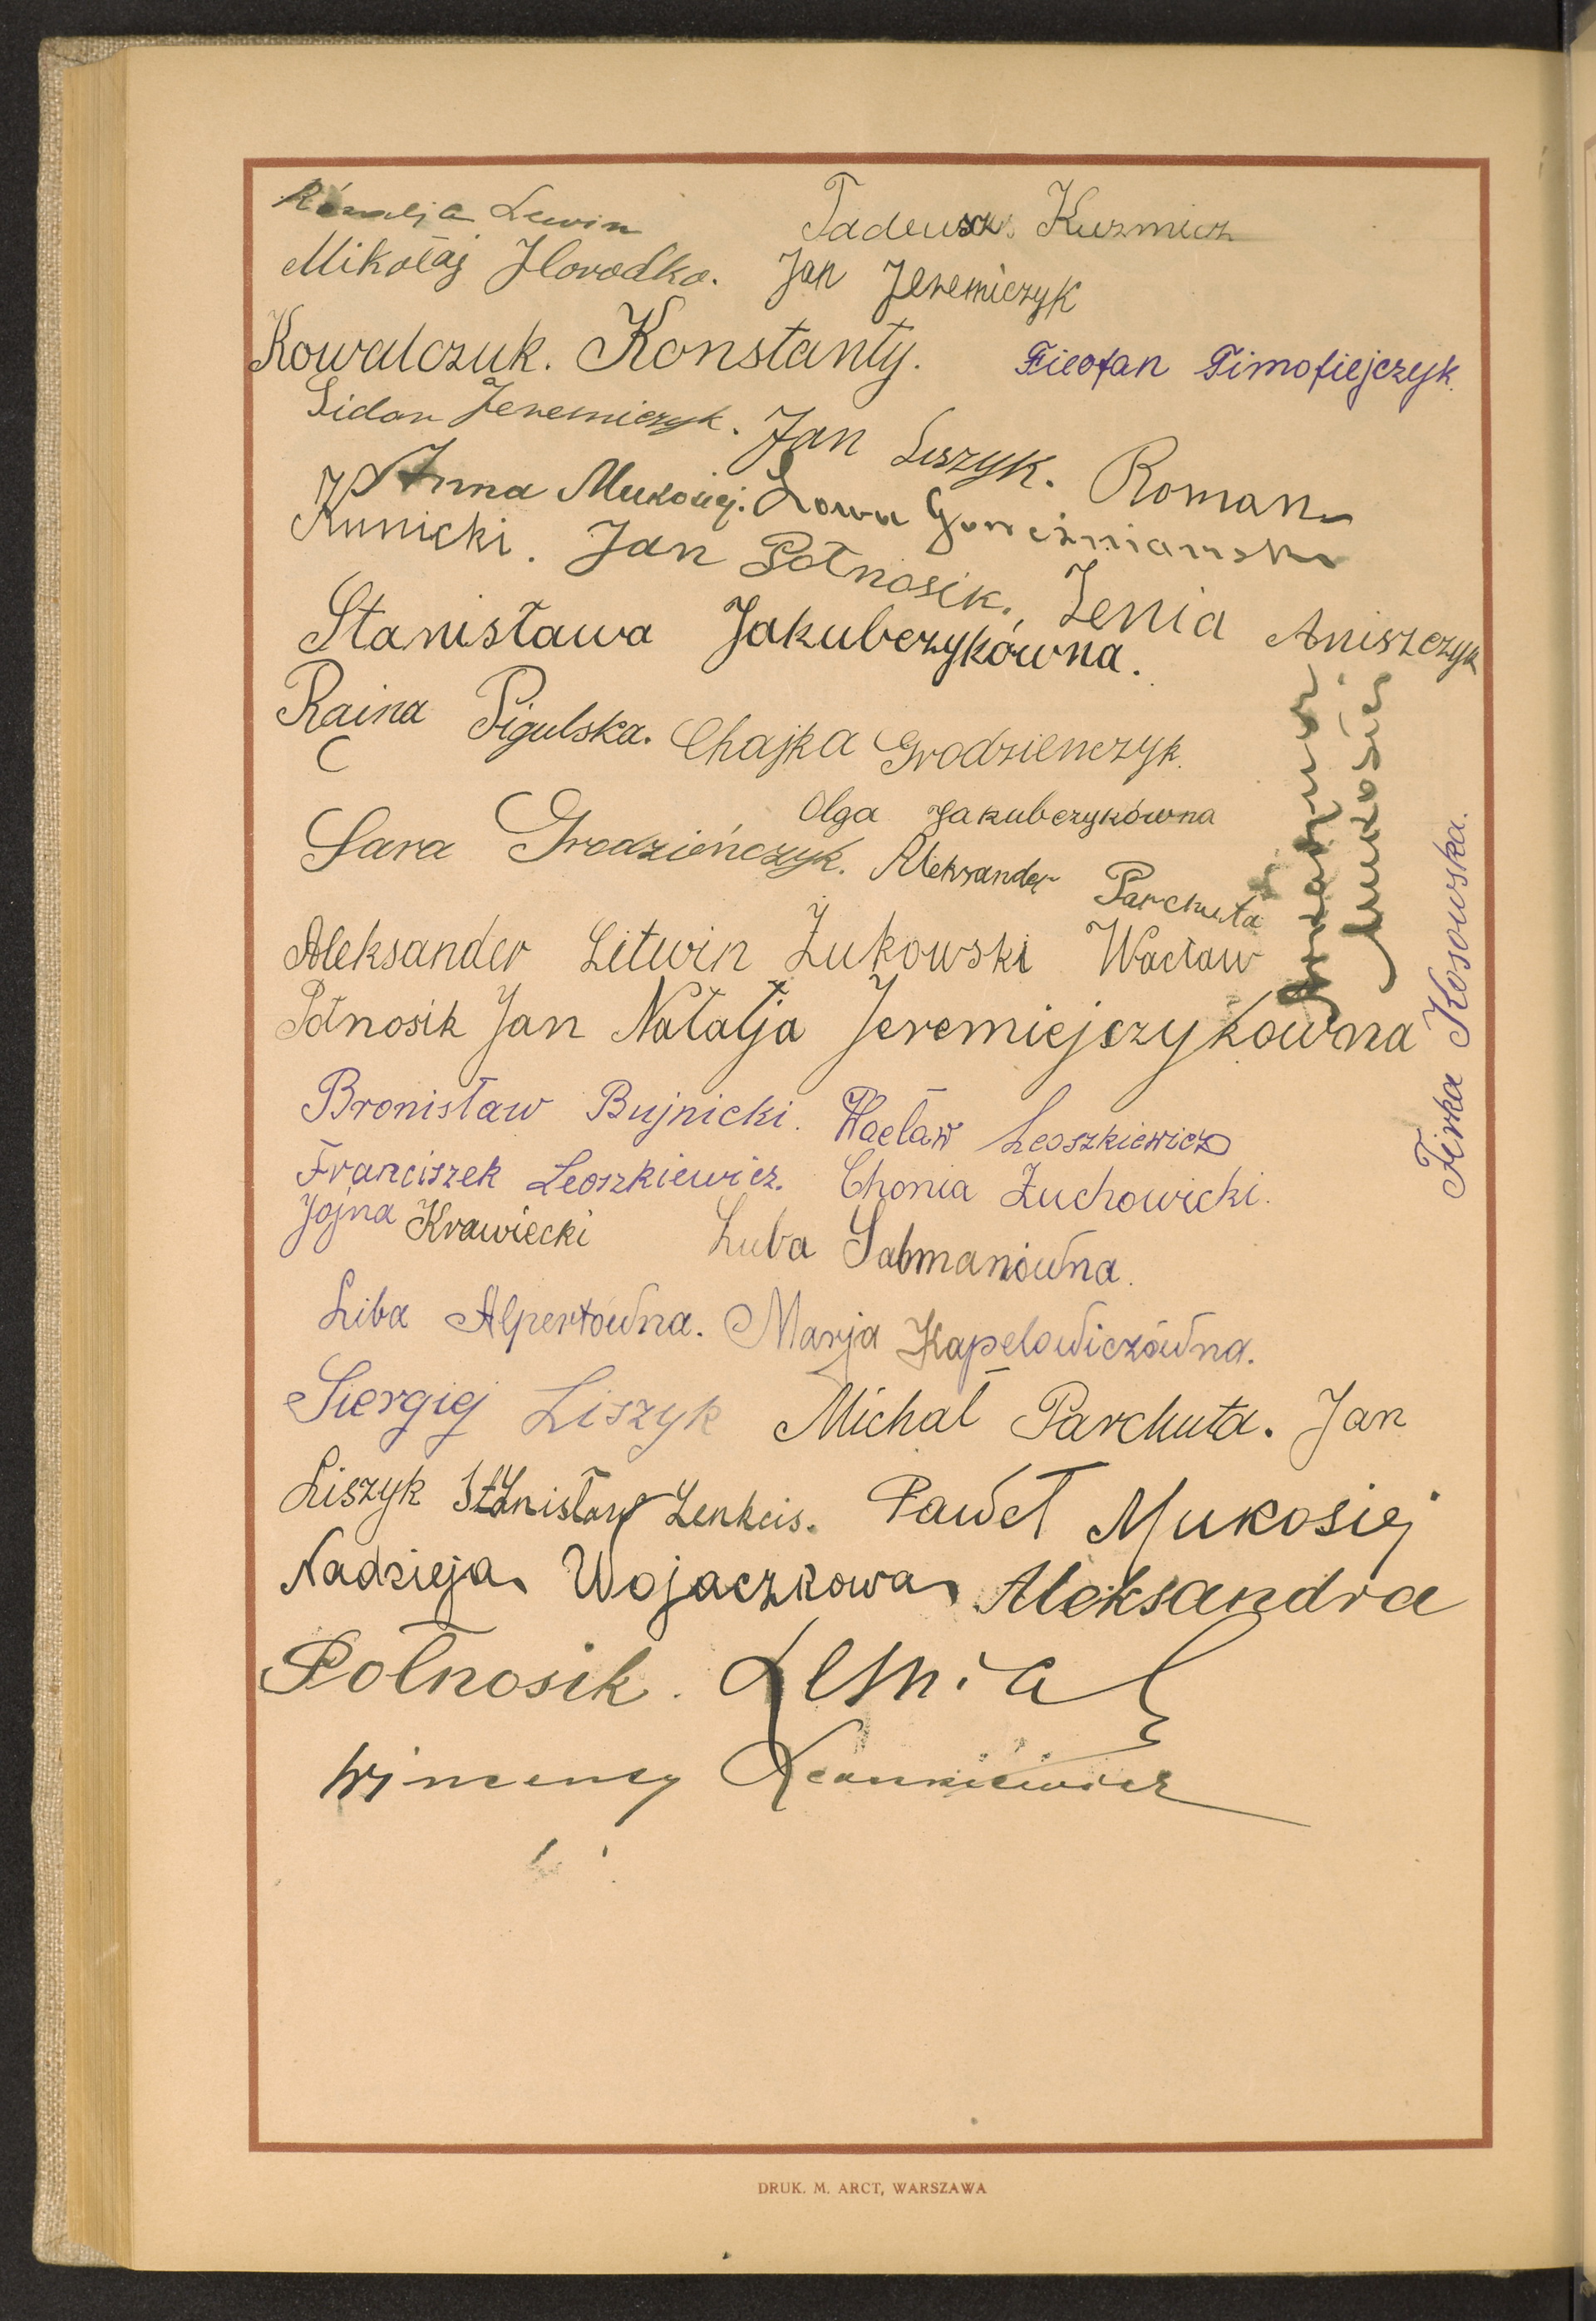 Lewin Tadeusz Kuzmicz
Mikołaj Horodko. Jan Jeremiczyk
Kowalczuk. Konstanty. Fieofan Timofiejczyk
Sidor Jeremiczyk. Jan Liszyk. Roman
Anna Mukosiej.
Kunicki. Jan Połnosik. Zenia Aniszczyk
Stanisława Jakubczykówna.
Raina Pigulska. Chajka Grodzienczyk.
Olga Jakubczykówna
Sara Grodzieńczyk. Aleksander Parchuta
Aleksander Litwin Żukowski Wacław
Połnosik Jan Natalja Jeremiejczykówna
Mukosiej
Firka Kosowska.
Bronisław Bujnicki. Wacław Leoszkiewicz
Franciszek Leoszkiewicz. Chonia Żuchowicki.
Jojna Krawiecki Luba Salmanówna.
Liba Alpertówna. Marja Kapelowiczówna.
Siergiej Liszyk Michał Parchuta. Jan
Liszyk Stanisław Lenkcis. Paweł Mukosiej
Nadzieja Wojaczkowa Aleksandra
Połnosik.
Wincenty
DRUK. M. ARCT, WARSZAWA